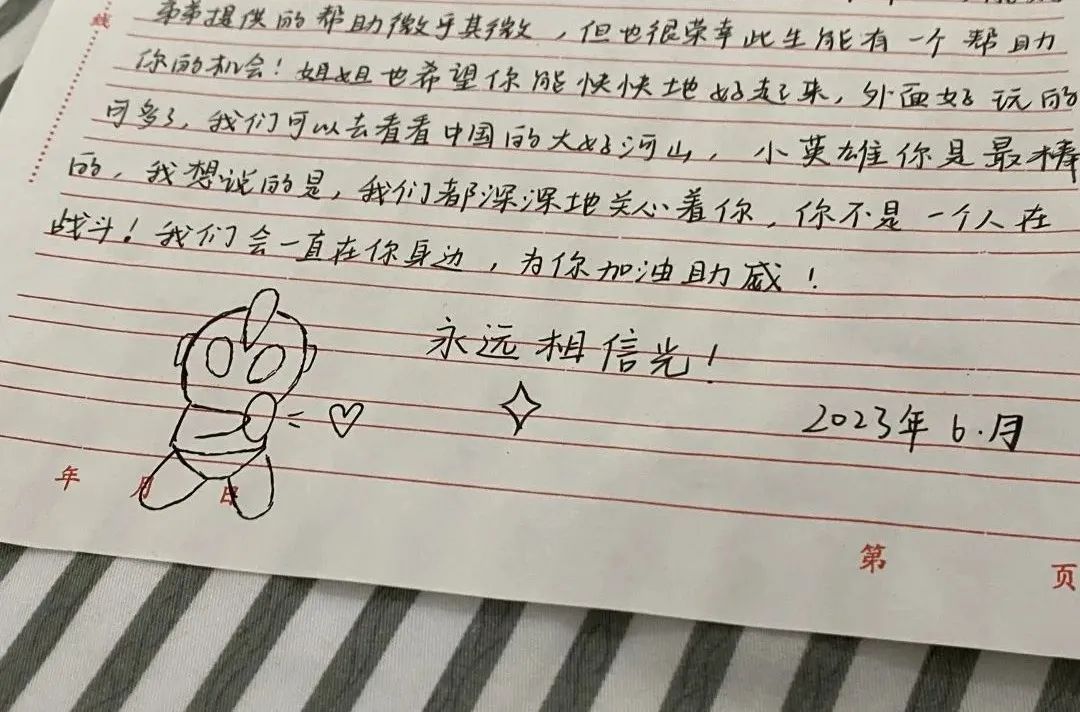 线
弟弟提供的帮助微乎其微，但也很荣幸此生能有一个帮助
你的机会！姐姐也希望你能快快地好起来，外面好玩的
可多了，我们可以去看看中国的大好河山，小英雄你是最棒
的，我想说的是，我们都深深地关心着你，你不是一个人在
战斗！我们会一直在你身边，为你加油助威！
永远相信光！
2023年6.月
年 月 日
第 页